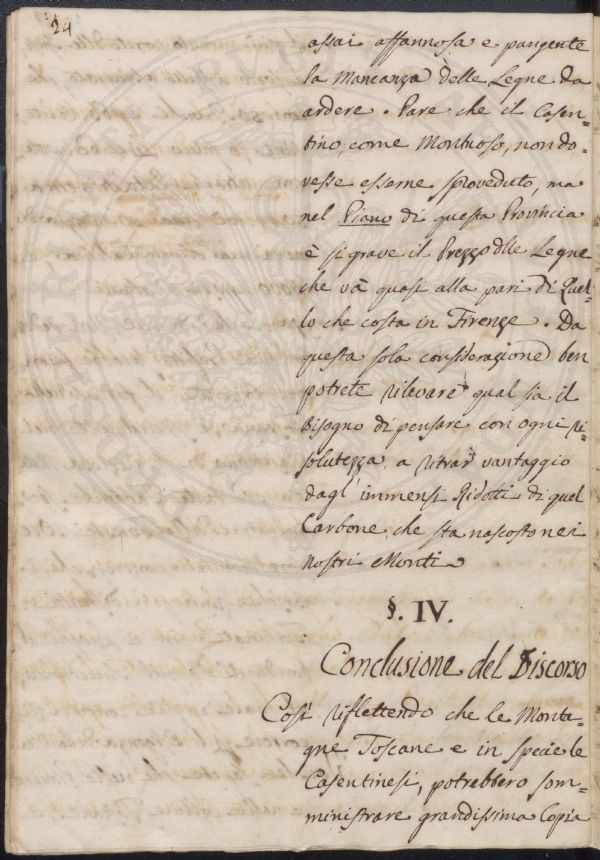 24
assai affannosa e pungente
la Mancanza delle Legne da
ardere. Pare che il Casen=
tino, come Montuoso, non do=
vesse esserne sproveduto, ma
nel Piano di questa Provincia
è si grave il Prezzo dlle Legne
che và quasi alla pari di Quel=
lo che costa in Firenze. Da
questa sola considerazione ben
potrete rilevare qual sia il
bisogno di pensare con ogni ri=
solutezza, a ritrar vantaggio
dagl' immensi Ridotti di quel
Carbone, che sta nascosto nei
nostri Monti
§. IV.
Conclusione del Discorso
Così riflettendo che le Monta=
gne Toscane e in specie le
Casentinesi, potrebbero som=
ministrare grandissima Copia